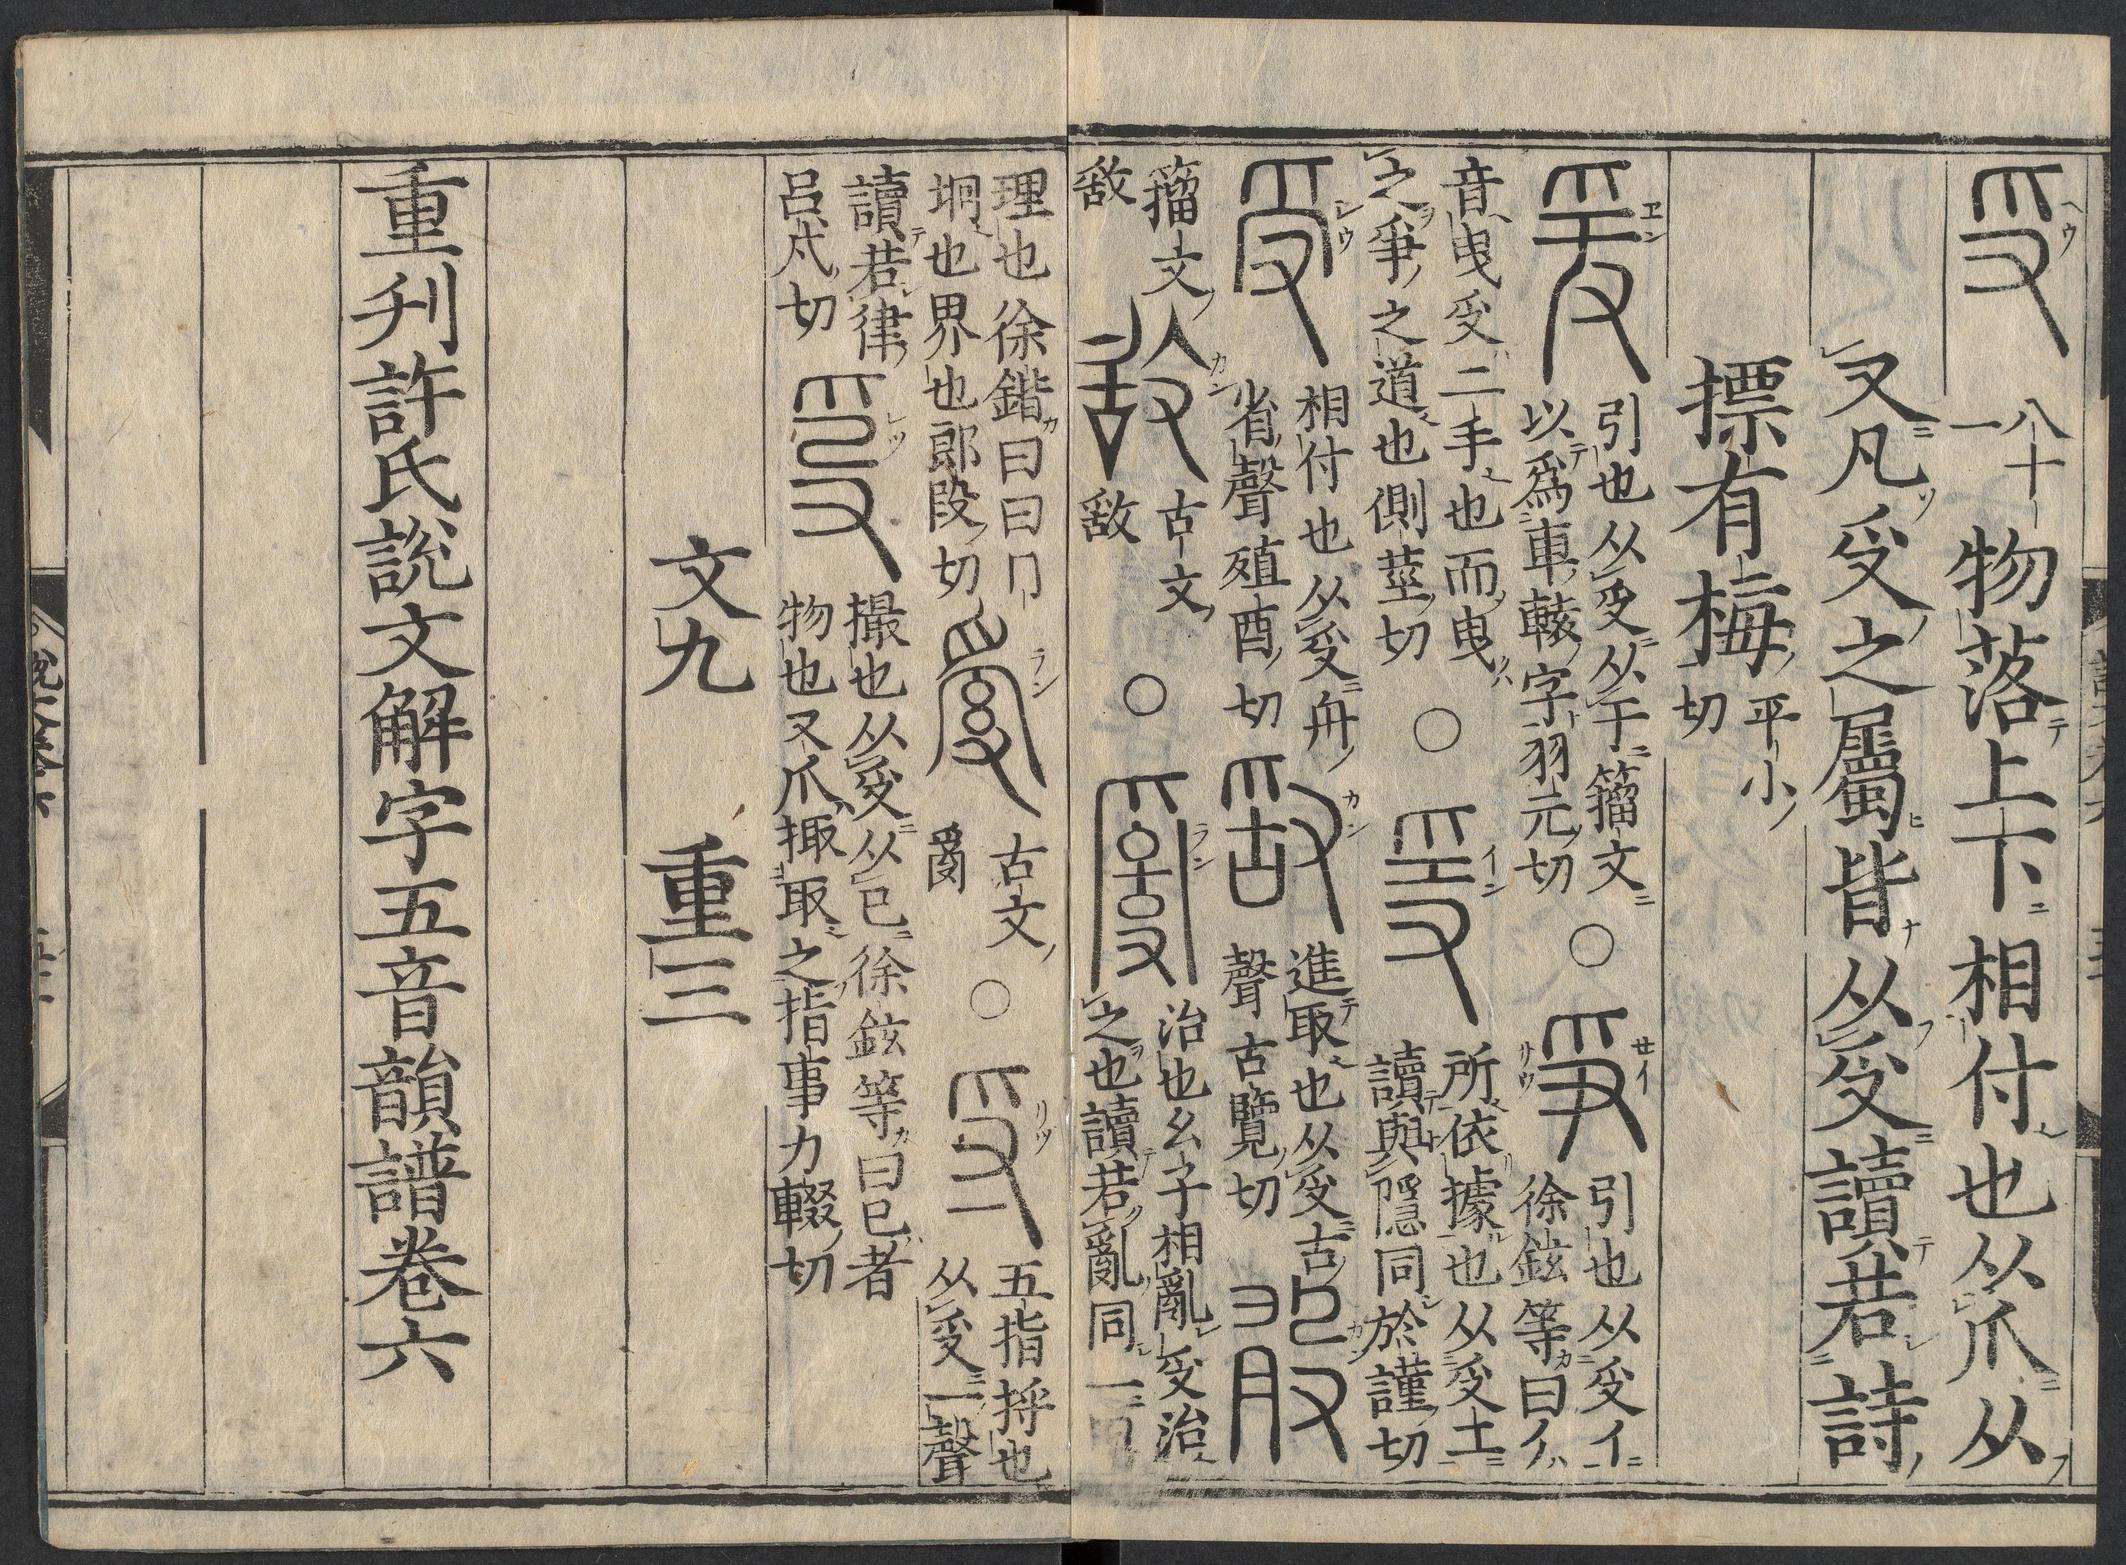 𠬪 八十一 物落上下相付也从爪从
又凡𠬪之屬皆从𠬪讀若詩
摽有梅平小切
爰 引也从𠬪从于籀文以爲車轅字羽元切 ○ 爭 引也从𠬪𠂆徐鉉等曰𠂆
音曳𠬪二手也而曳之爭之道也側莖切 ○ 㥯 所依據也从𠬪土讀與隱同於謹切
受 相付也从𠬪舟省聲殖酉切 𠭖 進取也从𠬪古聲古覽切
籀文敢 古文敢 ○ 𤔔 治也幺子相亂𠬪治之也讀若亂同一曰
理也徐鍇曰曰冂坰也界也郎段切 古文𤔔 ○ 寽 五指捋也从𠬪一聲
讀若律呂戌切 𠭥 撮也从𠬪从已徐鉉等曰已者物也又爪掫取之指事力輟切
文九 重三
重刋許氏說文解字五音韻譜卷六